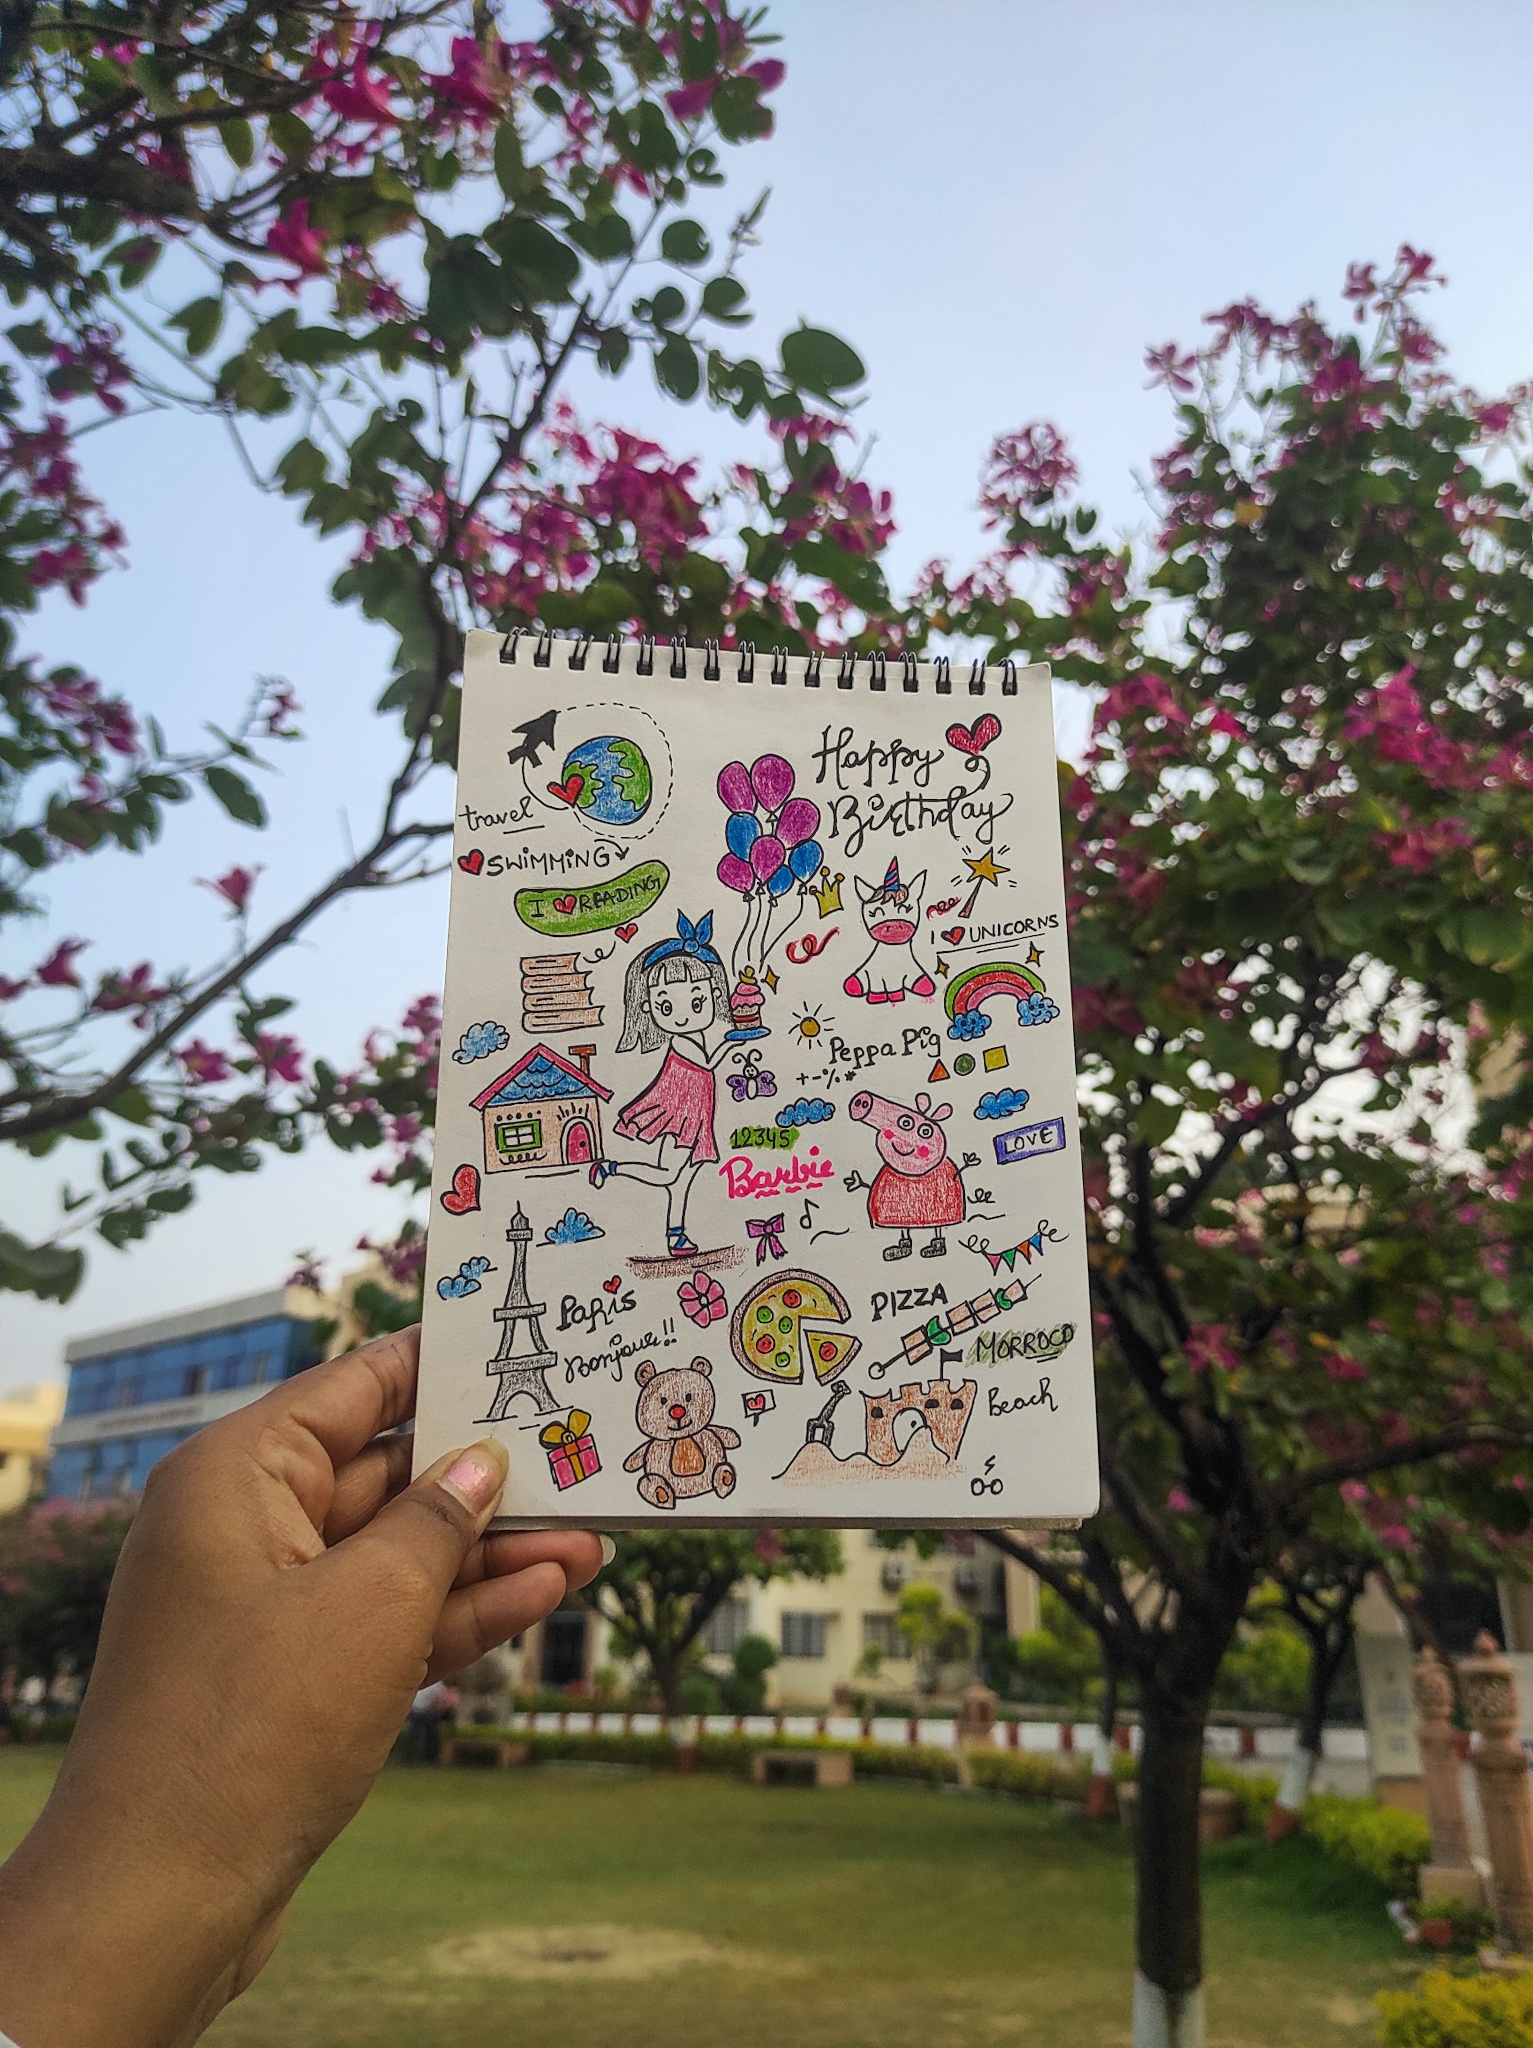 Happy
Birthday
travel
SWIMMING
I ❤ READING
I ❤ UNICORNS
Peppa Pig
+-%*
12345
Barbie
LOVE
PARis
Bonjour!!
PIZZA
MORROCO
beach